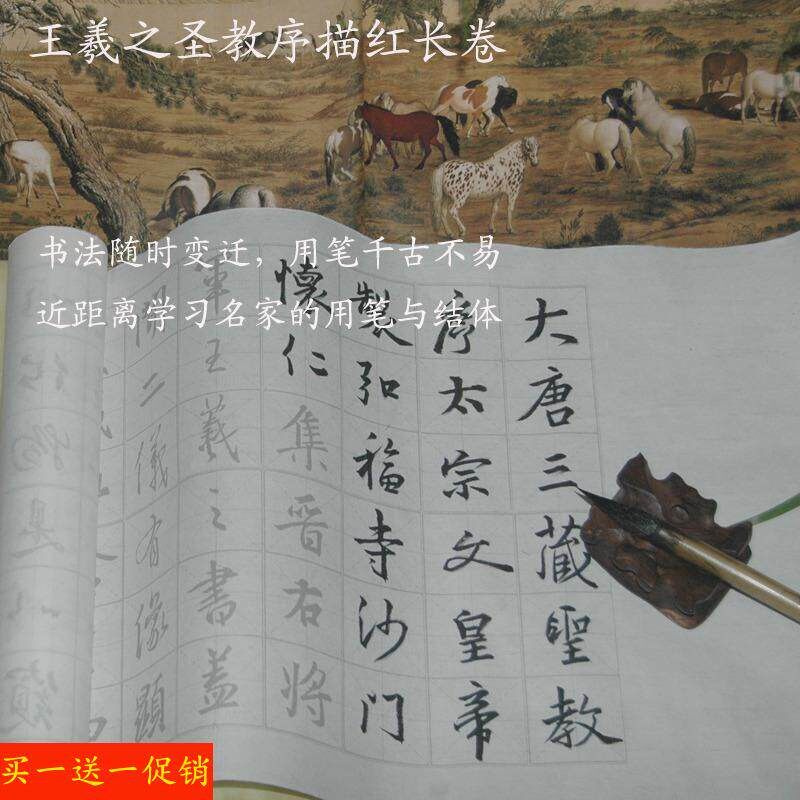 王羲之圣教序描红长卷
书法随时变迁，用笔千古不易
近距离学习名家的用笔与结体
大唐三藏聖教
序太宗文皇帝
製弘福寺沙门
懷仁集晋右将
軍王羲之書蓋
聞二儀有像顯
买一送一促销